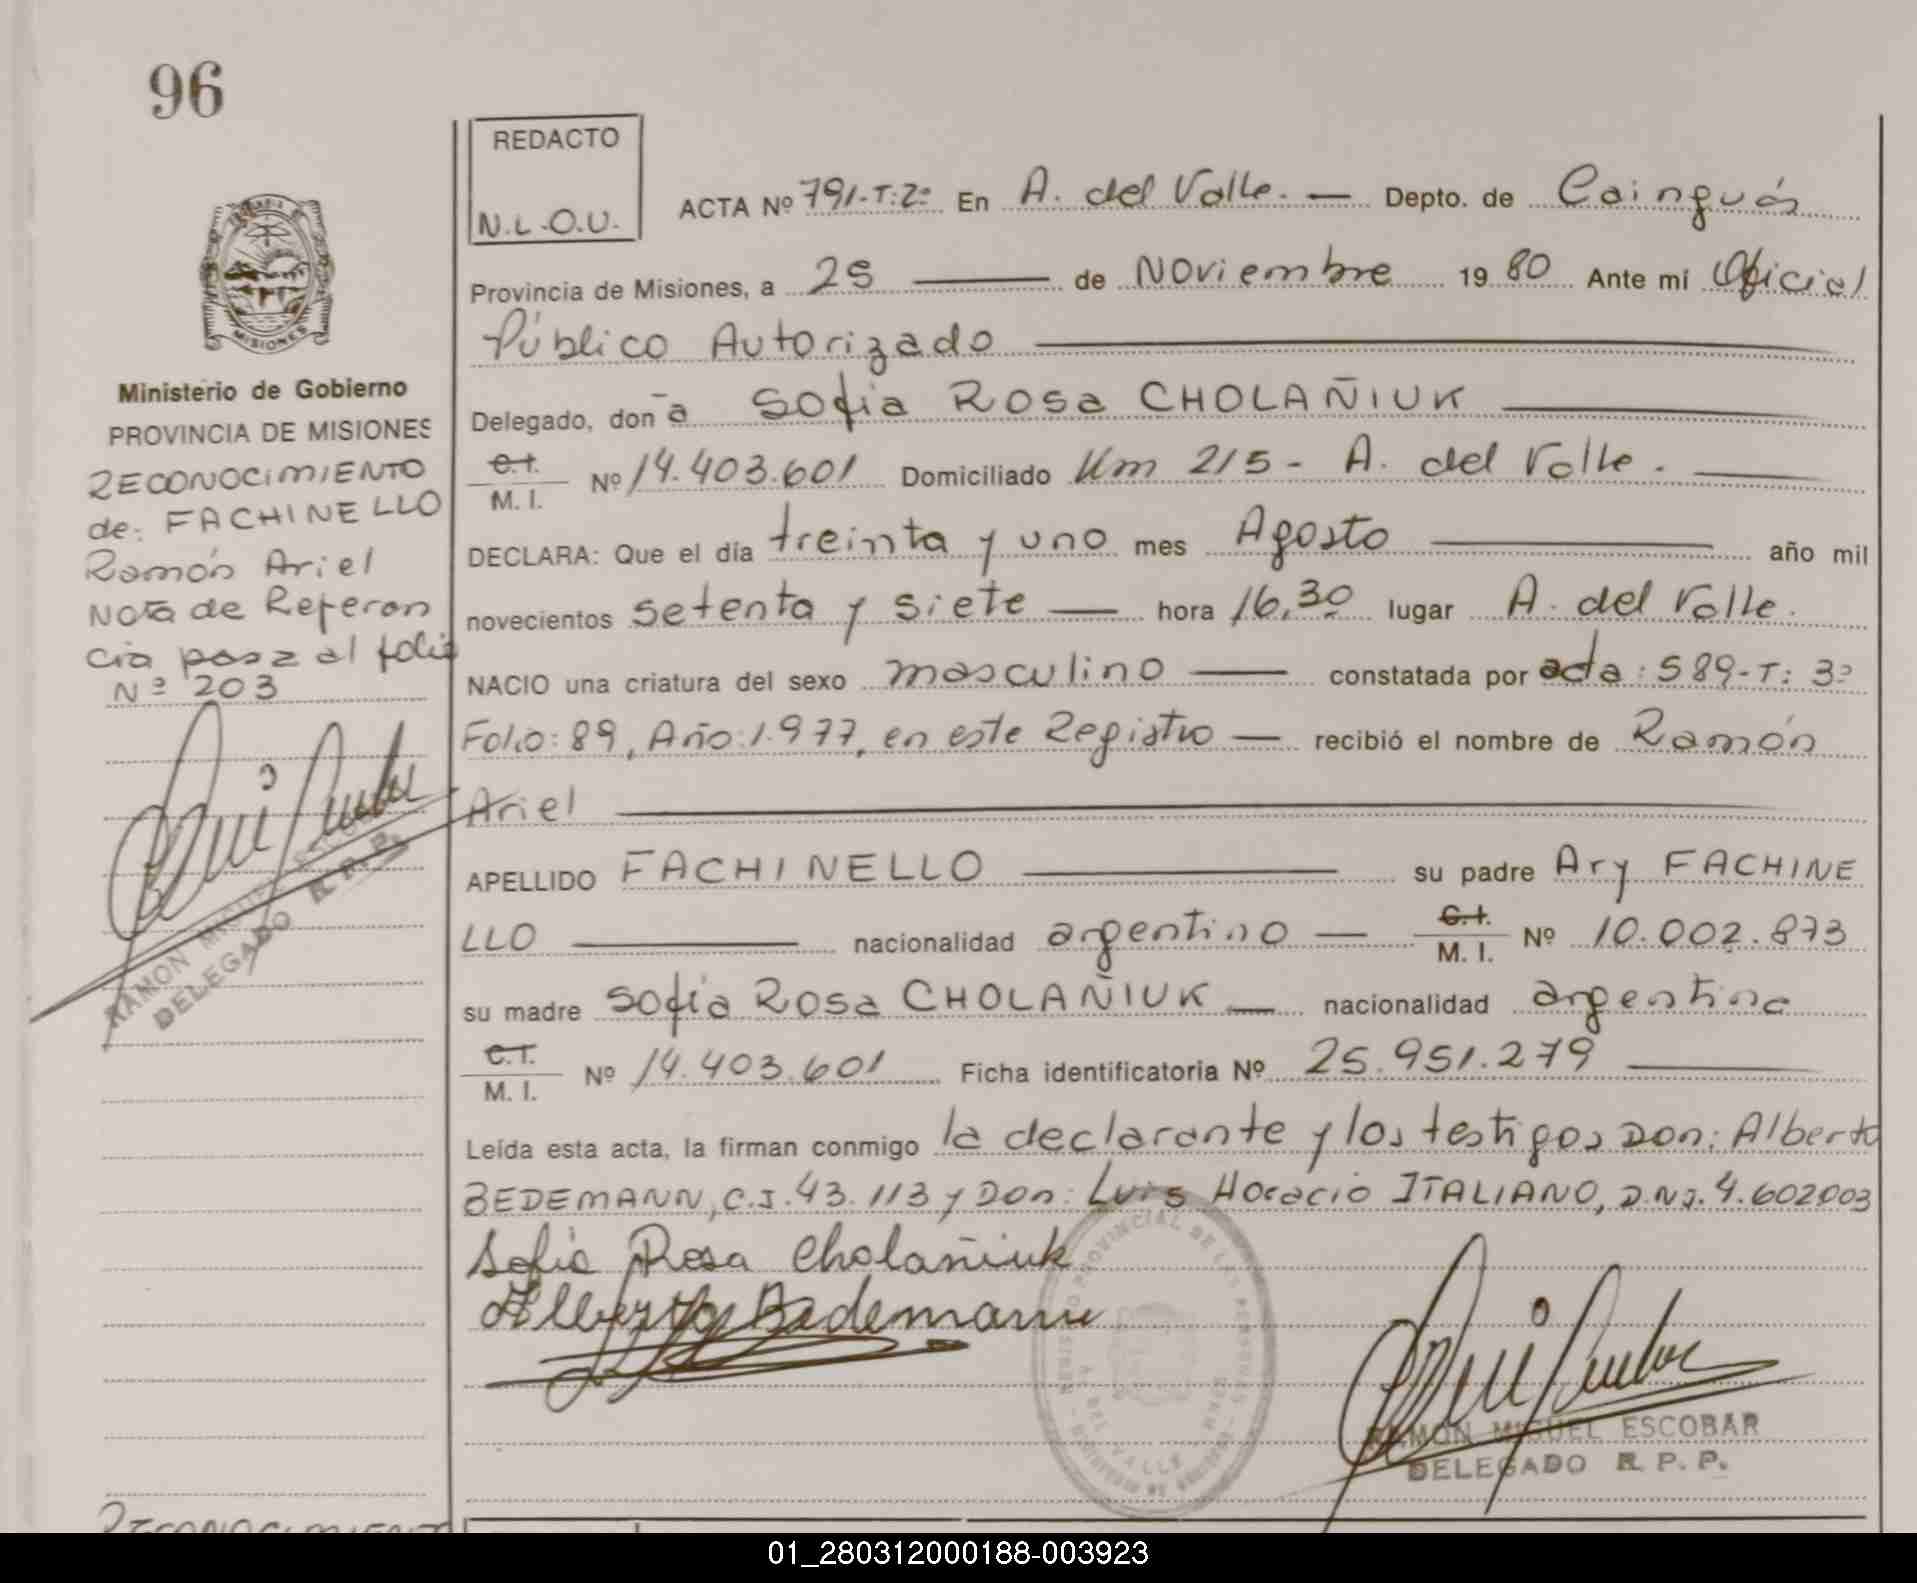 96
REDACTO
N.L.O.U.
ACTA Nº 791-T:2º En A. del Valle. — Depto. de Cainguás
Provincia de Misiones, a 25 — de Noviembre 1980 Ante mi Oficial
Público Autorizado
Delegado, don ã Sofia Rosa CHOLAÑIUK
C.I.
M. I. Nº 14.403.601 Domiciliado Km 215 - A. del Valle.
DECLARA: Que el día treinta y uno mes Agosto — año mil
novecientos setenta y siete — hora 16,30 lugar A. del Valle.
NACIO una criatura del sexo masculino — constatada por acta: 589-T: 3º
Folio: 89, Año: 1.977, en este Registro — recibió el nombre de Ramón
Ariel
APELLIDO FACHINELLO — su padre Ary FACHINE
LLO — nacionalidad argentino — C.I. M. I. Nº 10.002.873
su madre Sofia Rosa CHOLAÑIUK — nacionalidad argentina
C.I.
M. I. Nº 14.403.601 Ficha identificatoria Nº 25.951.279
Leída esta acta, la firman conmigo la declarante y los testigos Don: Alberto
BEDEMANN, C.I. 43.113 y Don: Luis Horacio ITALIANO, D.N.I. 4.602003
Sofia Rosa Cholañiuk
Alberto Bademann
RAMON MIGUEL ESCOBAR
DELEGADO R. P. P.
MISIONES
Ministerio de Gobierno
PROVINCIA DE MISIONES
RECONOCIMIENTO
de: FACHINELLO
Ramón Ariel
Nota de Referen
cia pasa al folio
Nº 203
RAMON MIGUEL ESCOBAR
DELEGADO R. P. P.
RECONOCIMIENTO
01_280312000188-003923